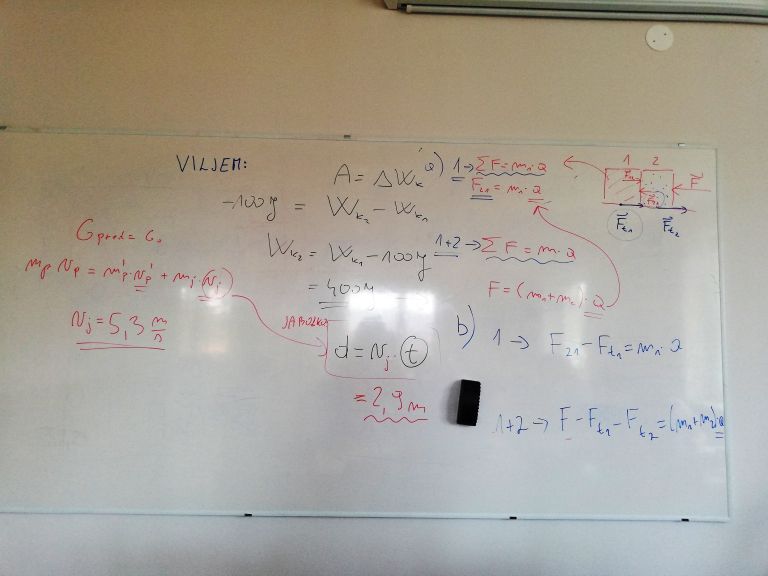 VILJEM:
A = ΔW_k
-100 J = W_k2 - W_k1
W_k2 = W_k1 - 100 J
= 400 J
G_pred = G_0
m_p v_p = m_p' · v_p' + m_j · v_j
v_j = 5,3 m/s
JABOLKO
d = v_j · t
= 2,9 m
a) 1 → ΣF = m_1 · a
F_21 = m_1 · a
1+2 → ΣF = m · a
F = (m_1 + m_2) · a
1 2
F
F_t1 F_t2
b) 1 → F_21 - F_t1 = m_1 · a
1+2 → F - F_t1 - F_t2 = (m_1 + m_2) · a